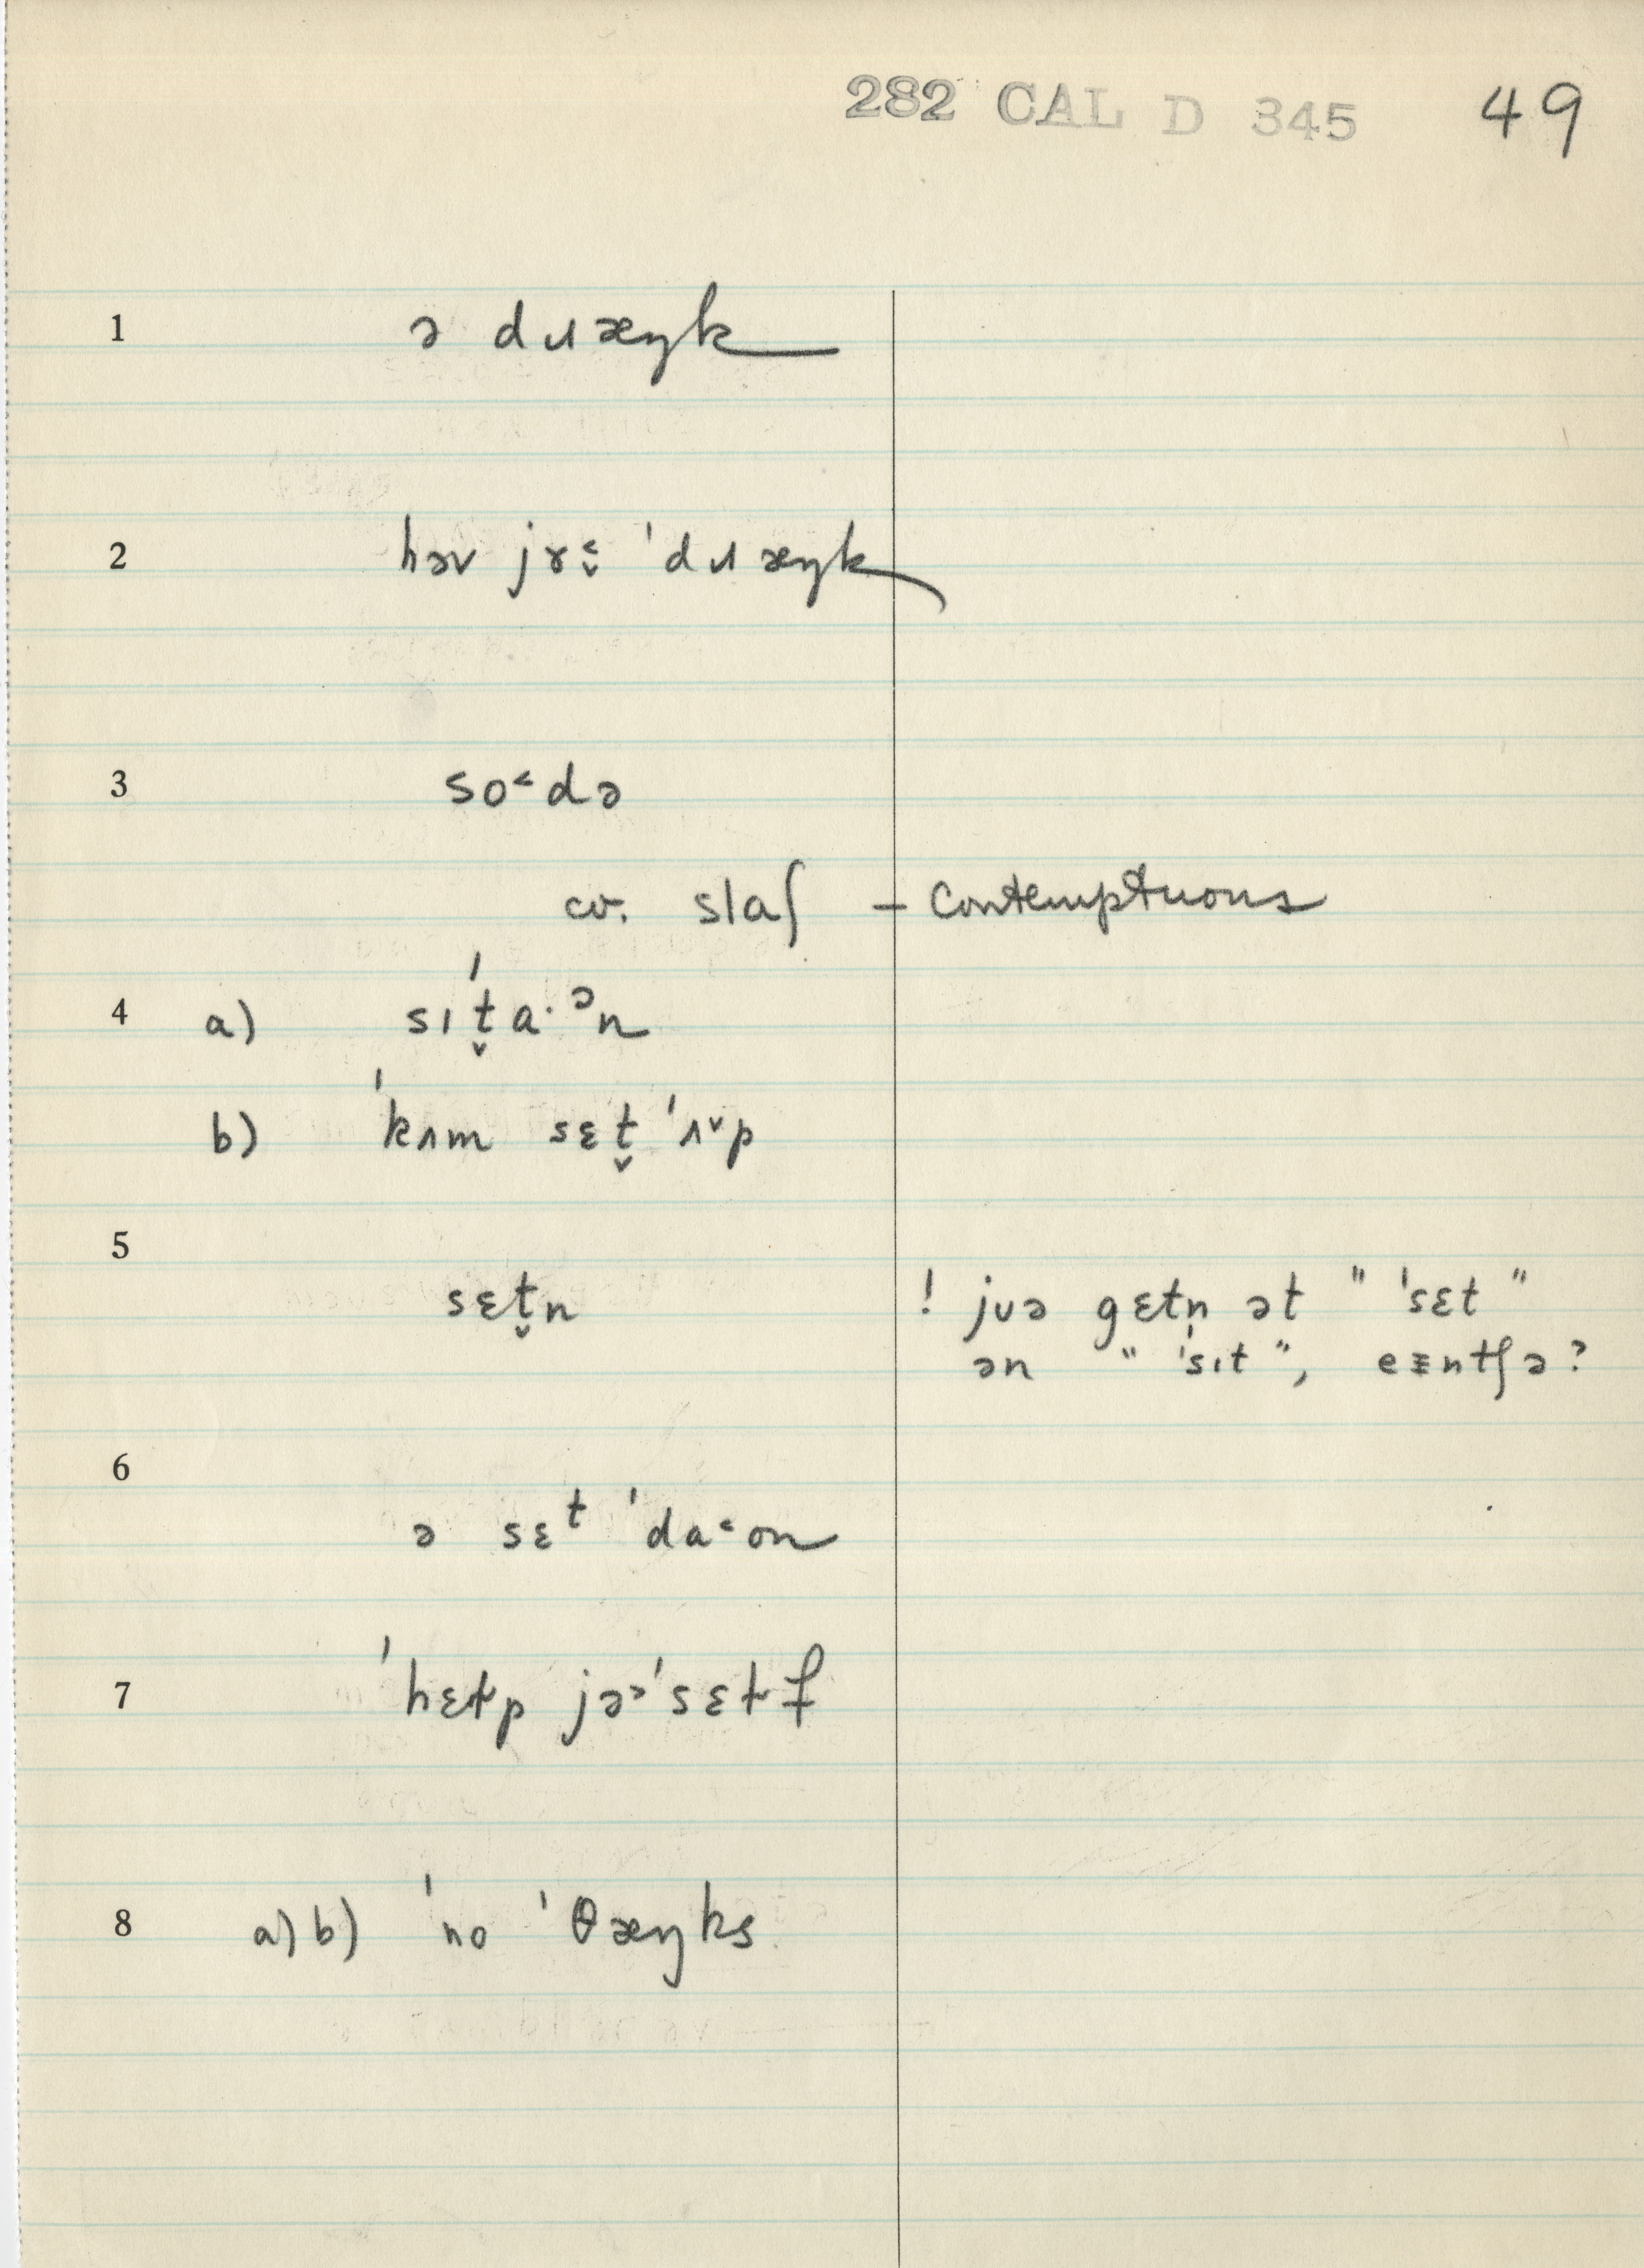 282 CAL D 345 49
1 ə dɹæŋk
2 həv jɤ˂̬ ˈdɹæŋk
3 so˂də
cv. slaʃ – Contemptuous
4 a) sɪˈt̬a·ᵊn
b) ˈkʌm sɛt̬ ˈʌ˅p
5 sɛt̬n ! jʊə gɛtn̩ ət " ˈsɛt "
ən " ˈsɪt ", eᵻntʃə?
6 ə sɛᵗ ˈda˂on
7 ˈhɛɫp jə˃ˈsɛɫf
8 a) b) ˈno ˈθæŋks